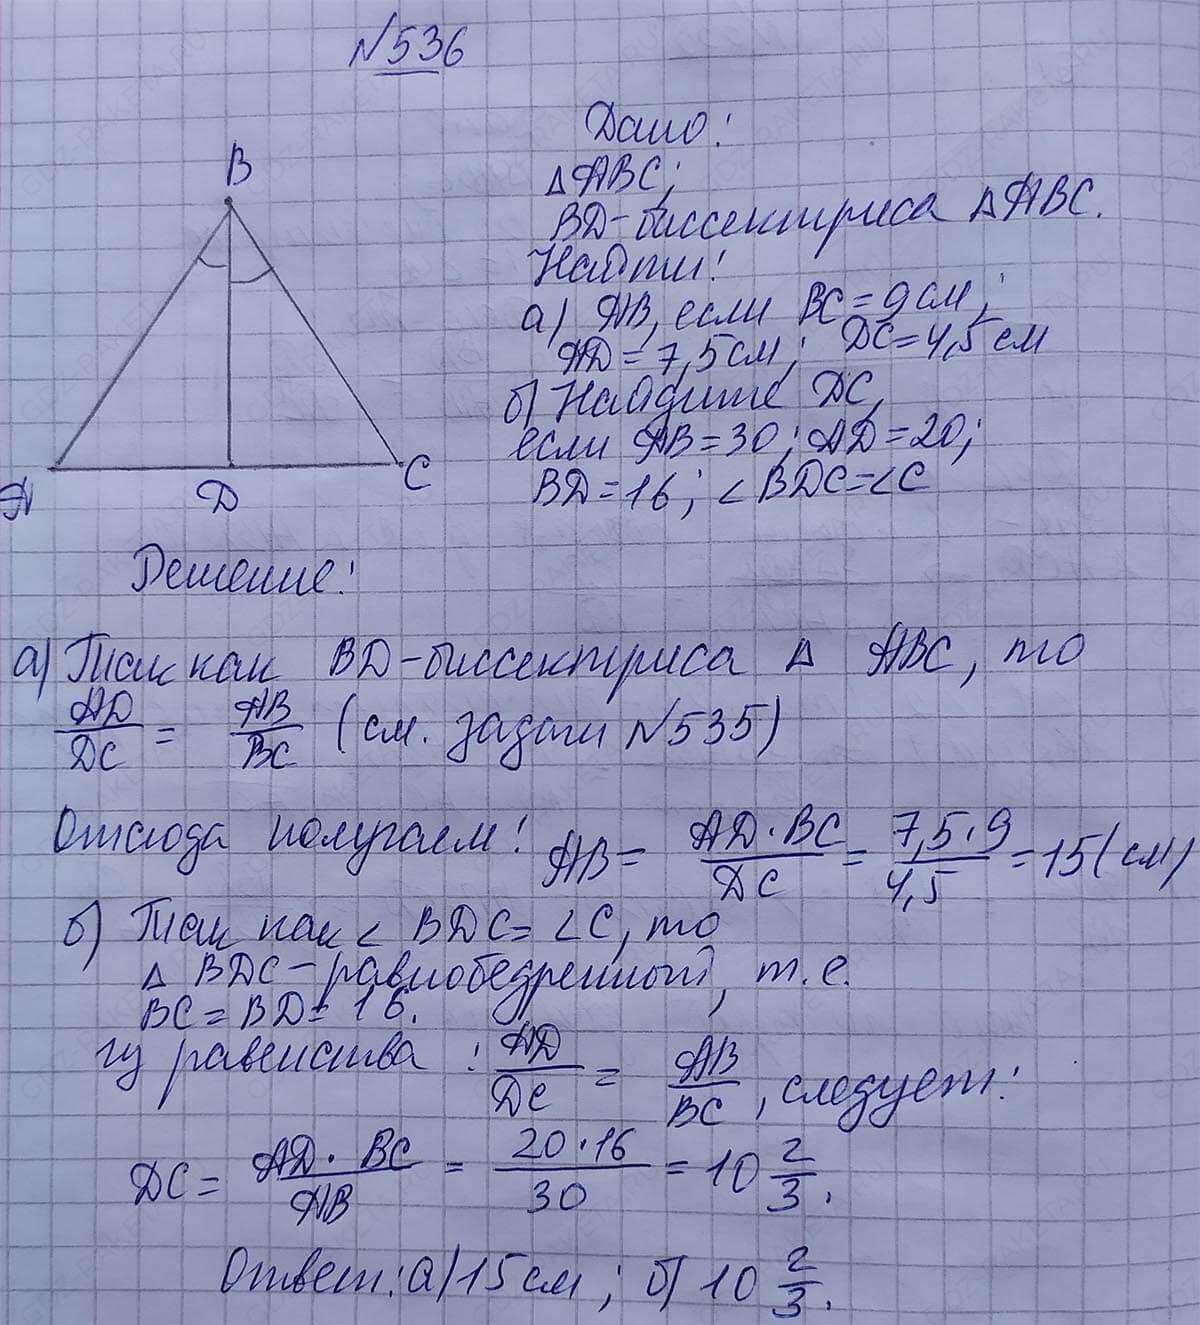 №536
B
A
D
C
Дано:
△ABC;
BD-биссектриса △ABC.
Найти:
а) AB, если BC=9см;
AD=7,5см; DC=4,5см
б) Найдите DC,
если AB=30; AD=20;
BD=16; ∠BDC=∠C
Решение:
а) Так как BD-биссектриса △ ABC, то
AD/DC = AB/BC (см. задачи №535)
Отсюда получаем: AB= AD·BC/DC = 7,5·9/4,5 =15(см)
б) Так как ∠BDC=∠C, то
△ BDC-равнобедренный, т.е.
BC=BD=16.
из равенства : AD/DC = AB/BC, следует:
DC= AD·BC/AB = 20·16/30 =10 2/3.
Ответ: а)15см; б) 10 2/3.